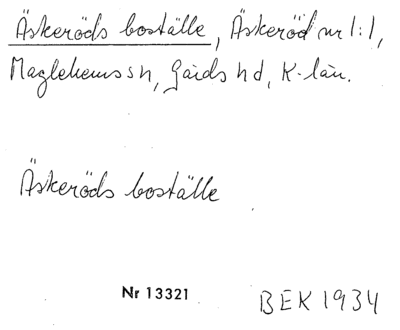 Äskeröds boställe, Äskeröd nr 1:1,
Maglehems sn, Gärds hd, K-län.
Äskeröds boställe
Nr 13321
BEK 1934